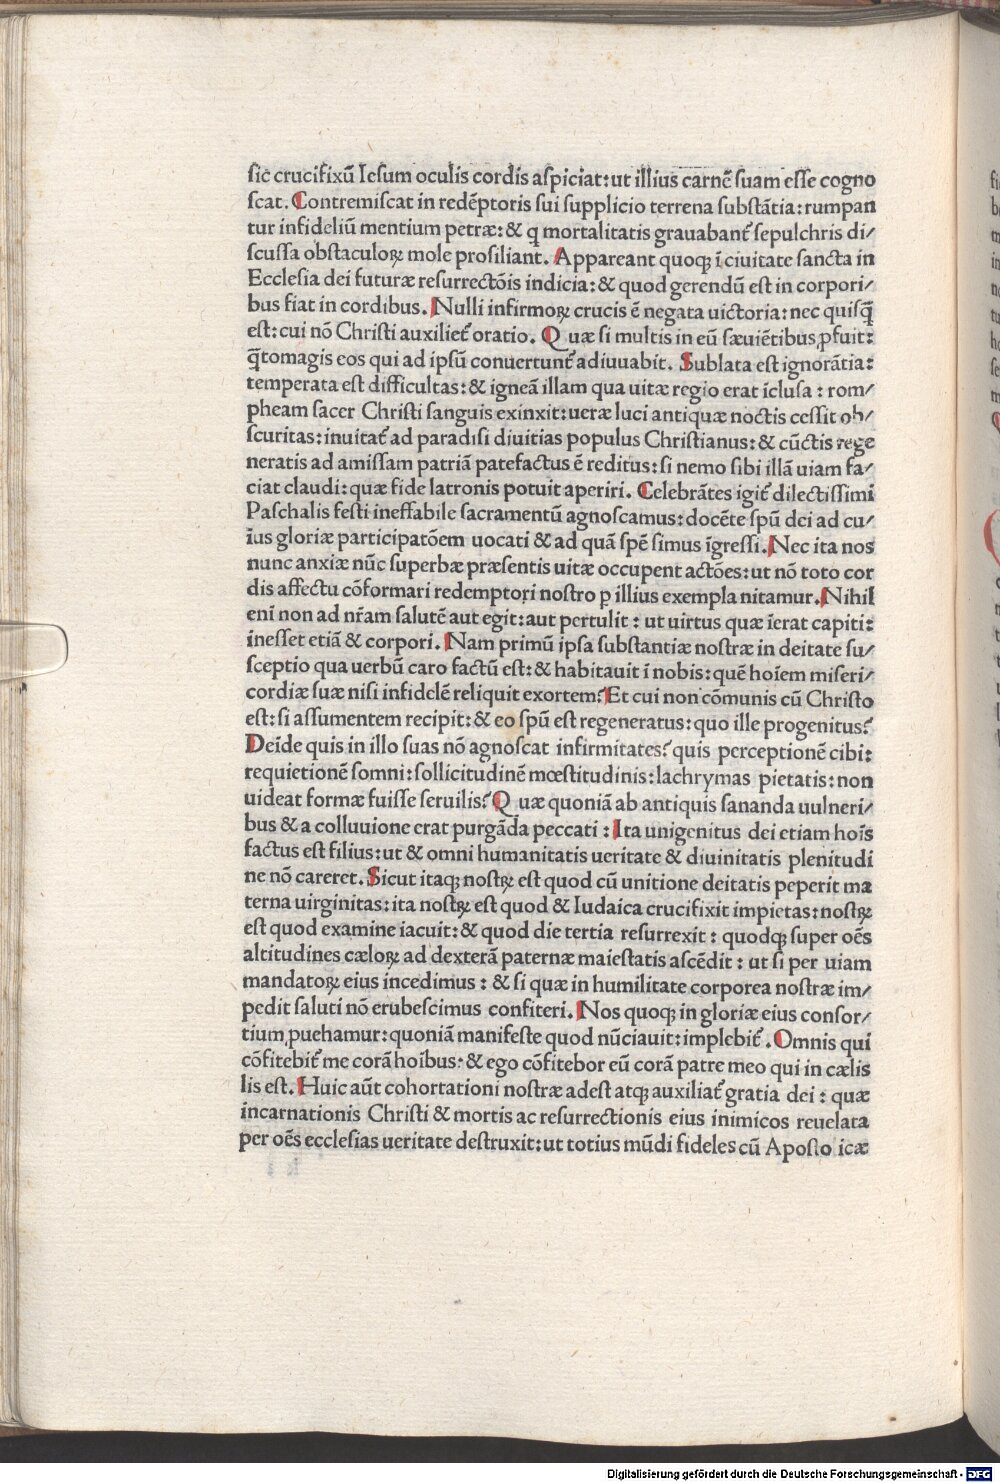 sic crucifixū Iesum oculis cordis aspiciat: ut illius carnē suam esse cogno
scat. Contremiscat in redēptoris sui supplicio terrena substātia: rumpan
tur infideliū mentium petræ: & q mortalitatis grauabant̃ sepulchris di/
scussa obstaculoꝝ mole prosiliant. Appareant quoqꝫ ī ciuitate sancta in
Ecclesia dei futuræ resurrectōis indicia: & quod gerendū est in corpori/
bus fiat in cordibus. Nulli infirmoꝝ crucis ē negata uictoria: nec quisq̄
est: cui nō Christi auxiliet̃ oratio. Quæ si multis in eū sæuiētibus ꝓfuit:
q̄tomagis eos qui ad ipsū conuertunt̃ adiuuabit. Sublata est ignorātia:
temperata est difficultas: & igneā illam qua uitæ regio erat īclusa : rom/
pheam sacer Christi sanguis exinxit: ueræ luci antiquæ noctis cessit ob/
scuritas: inuitat̃ ad paradisi diuitias populus Christianus: & cūctis rege
neratis ad amissam patriā patefactus ē reditus: si nemo sibi illā uiam fa/
ciat claudi: quæ fide latronis potuit aperiri. Celebrātes igit̃ dilectissimi
Paschalis festi ineffabile sacramentū agnoscamus: docēte spū dei ad cu/
ius gloriæ participatōem uocati & ad quā spē simus īgressi. Nec ita nos
nunc anxiæ nūc superbæ præsentis uitæ occupent actōes: ut nō toto cor
dis affectu cōformari redemptori nostro ꝑ illius exempla nitamur. Nihil
enī non ad nr̄am salutē aut egit: aut pertulit : ut uirtus quæ īerat capiti:
inesset etiā & corpori. Nam primū ipsa substantiæ nostræ in deitate su/
sceptio qua uerbū caro factū est: & habitauit ī nobis: quē hoīem miseri/
cordiæ suæ nisi infidelē reliquit exortem? Et cui non cōmunis cū Christo
est: si assumentem recipit: & eo spū est regeneratus: quo ille progenitus?
Deīde quis in illo suas nō agnoscat infirmitates? quis perceptionē cibi:
requietionē somni: sollicitudinē mœstitudinis: lachrymas pietatis: non
uideat formæ fuisse seruilis? Quæ quoniā ab antiquis sananda uulneri/
bus & a colluuione erat purgāda peccati : Ita unigenitus dei etiam hoīs
factus est filius: ut & omni humanitatis ueritate & diuinitatis plenitudi
ne nō careret. Sicut itaqꝫ nostꝝ est quod cū unitione deitatis peperit ma
terna uirginitas: ita nostꝝ est quod & Iudaica crucifixit impietas: nostꝝ
est quod examine iacuit: & quod die tertia resurrexit : quodqꝫ super oēs
altitudines cæloꝝ ad dexterā paternæ maiestatis ascēdit : ut si per uiam
mandatoꝝ eius incedimus : & si quæ in humilitate corporea nostræ im/
pedit saluti nō erubescimus confiteri. Nos quoqꝫ in gloriæ eius consor/
tium ꝓuehamur: quoniā manifeste quod nūciauit: implebit̃ . Omnis qui
cōfitebit̃ me corā hoībus: & ego cōfitebor eū corā patre meo qui in cælis
lis est. Huic aūt cohortationi nostræ adest atqꝫ auxiliat̃ gratia dei : quæ
incarnationis Christi & mortis ac resurrectionis eius inimicos reuelata
per oēs ecclesias ueritate destruxit: ut totius mūdi fideles cū Aposto icæ
Digitalisierung gefördert durch die Deutsche Forschungsgemeinschaft - DFG